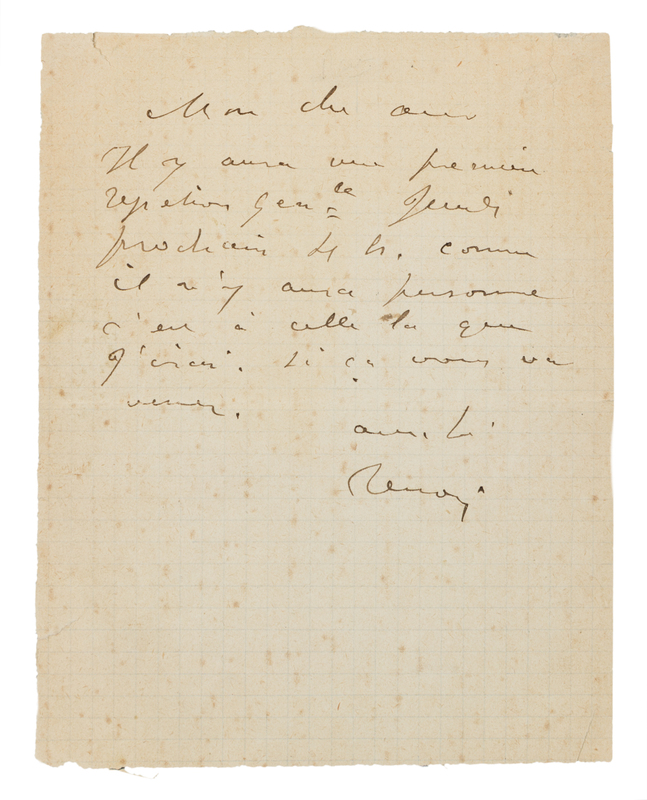 Mon cher ami
Il y aura une première
repetition génle Jeudi
prochain 4 h. comme
il n'y aura personne
c'est à celle la que
j'irai. si ça vous va
venez.
amitié
Renoir